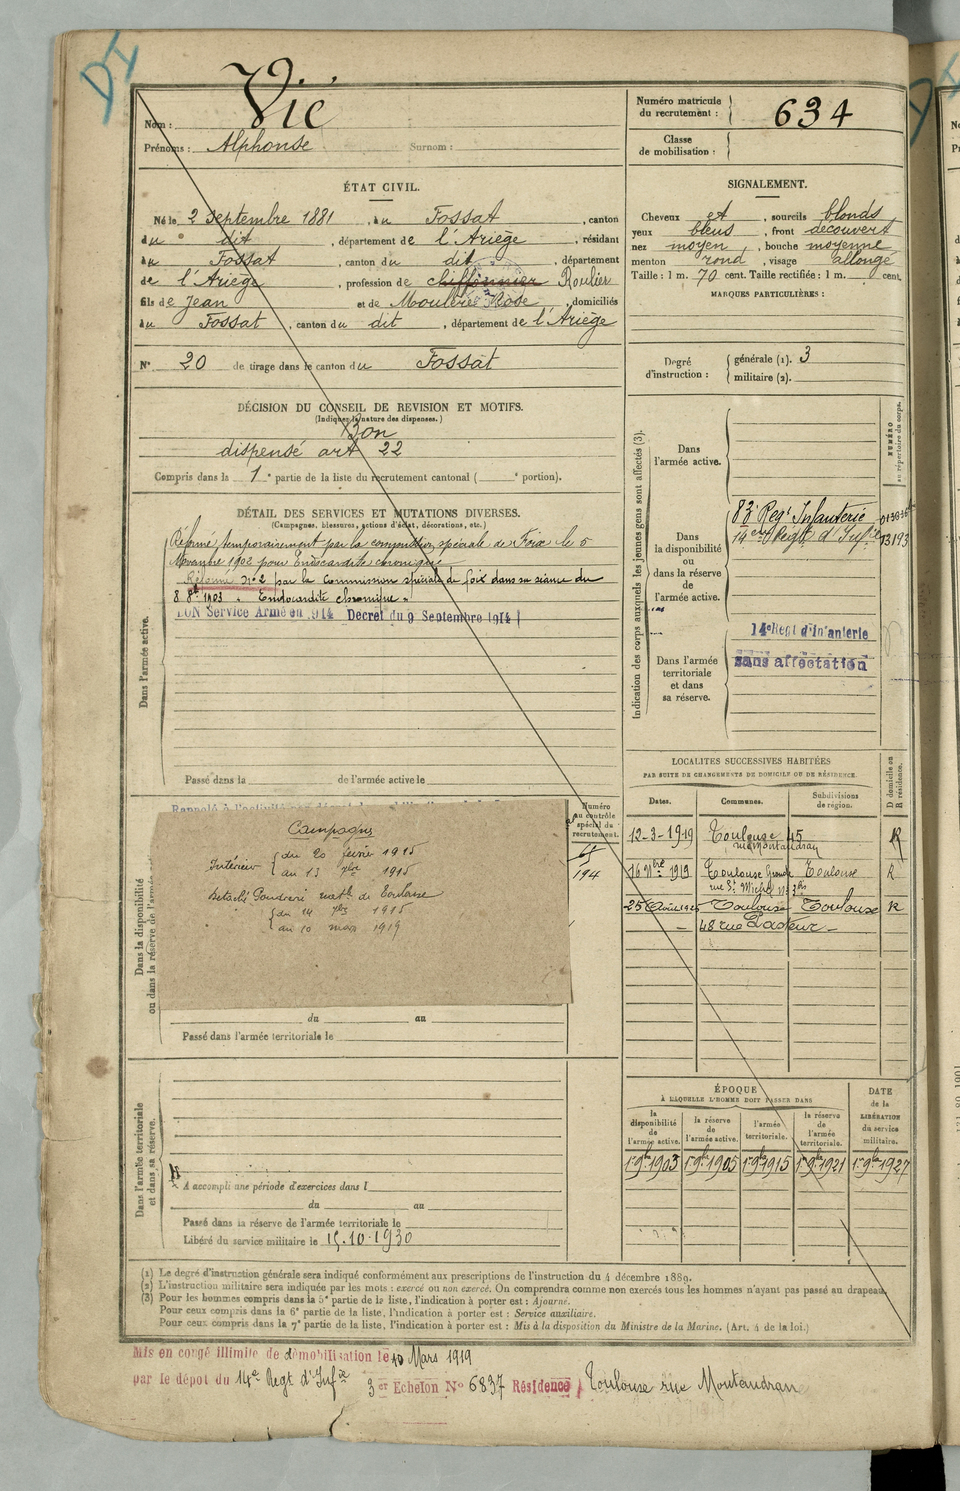 Vié
Nom :
Prénoms : Alphonse Surnom :
Numéro matricule
du recrutement : 634
Classe
de mobilisation :
ÉTAT CIVIL.
Né le 2 Septembre 1881, à u Fossat, canton
du dit, département de l'Ariège, résidant
à u Fossat, canton du dit, département
de l'Ariège, profession de chiffonnier Roulier
fils de Jean et de Moulères Rose, domiciliés
à u Fossat, canton du dit, département de l'Ariège
N° 20 de tirage dans le canton du Fossat
SIGNALEMENT.
Cheveux et, sourcils blonds
yeux bleus, front découvert
nez moyen, bouche moyenne
menton rond, visage allongé
Taille : 1 m. 70 cent. Taille rectifiée : 1 m. cent.
MARQUES PARTICULIÈRES :
Degré
d'instruction :
générale (1). 3
militaire (2).
DÉCISION DU CONSEIL DE REVISION ET MOTIFS.
(Indiquer la nature des dispenses.)
Bon
dispensé art 22
Compris dans la 1e partie de la liste du recrutement cantonal ( e portion).
DÉTAIL DES SERVICES ET MUTATIONS DIVERSES.
(Campagnes, blessures, actions d'éclat, décorations, etc.)
Dans l'armée active.
Réformé temporairement par la commission spéciale de Foix le 5
Novembre 1902 pour Endocardite chronique
Réformé N° 2 par la Commission spéciale de foix dans sa séance du
8 8bre 1903 « Endocardite chronique »
BON Service Armé en 1914 Décret du 9 Septembre 1914
Passé dans la de l'armée active le
Indication des corps auxquels les jeunes gens sont affectés (3).
NUMÉRO
au répertoire du corps.
Dans
l'armée active.
Dans
la disponibilité
ou
dans la réserve
de
l'armée active.
83e Regt Infanterie
14eme Régt d'Infie 13193
Dans l'armée
territoriale
et dans
sa réserve.
14e Régt d'Infanterie
sans affectation
LOCALITÉS SUCCESSIVES HABITÉES
PAR SUITE DE CHANGEMENTS DE DOMICILE OU DE RÉSIDENCE.
Dates. Communes. Subdivisions de région. D domicile ou R résidence.
12-3-1919 Toulouse 45 R
rue Montaudran
16 9bre 1919 Toulouse Grande Toulouse R
rue St Michel N° 3bis
25 Août 1925 Toulouse Toulouse R
— 48 rue Pasteur —
Dans la disponibilité
ou dans la réserve de l'armée
Numéro
au contrôle
spécial du
recrutement.
194
Campagnes
Intérieur du 20 février 1915
au 13 7bre 1915
Détaché Poudrerie natle de Toulouse
du 14 7bre 1915
au 10 mars 1919
du au
Passé dans l'armée territoriale le
Dans l'armée territoriale
et dans sa réserve.
A accompli une période d'exercices dans l
du au
Passé dans la réserve de l'armée territoriale le
Libéré du service militaire le 15.10.1930
ÉPOQUE
À LAQUELLE L'HOMME DOIT PASSER DANS
DATE
de la
LIBÉRATION
du service
militaire.
la disponibilité de l'armée active. la réserve de l'armée active. l'armée territoriale. la réserve de l'armée territoriale.
1er 9bre 1903 1er 9bre 1905 1er 9bre 1915 1er 9bre 1921 1er 9bre 1927
(1) Le degré d'instruction générale sera indiqué conformément aux prescriptions de l'instruction du 4 décembre 1889.
(2) L'instruction militaire sera indiquée par les mots : exercé ou non exercé. On comprendra comme non exercés tous les hommes n'ayant pas passé au drapeau.
(3) Pour les hommes compris dans la 5e partie de la liste, l'indication à porter est : Ajourné.
Pour ceux compris dans la 6e partie de la liste, l'indication à porter est : Service auxiliaire.
Pour ceux compris dans la 7e partie de la liste, l'indication à porter est : Mis à la disposition du Ministre de la Marine. (Art. 4 de la loi.)
Mis en congé illimité de démobilisation le 10 Mars 1919
par le dépôt du 14e Regt d'Infie 3er Echelon N° 6837 Résidence Toulouse rue Montaudran